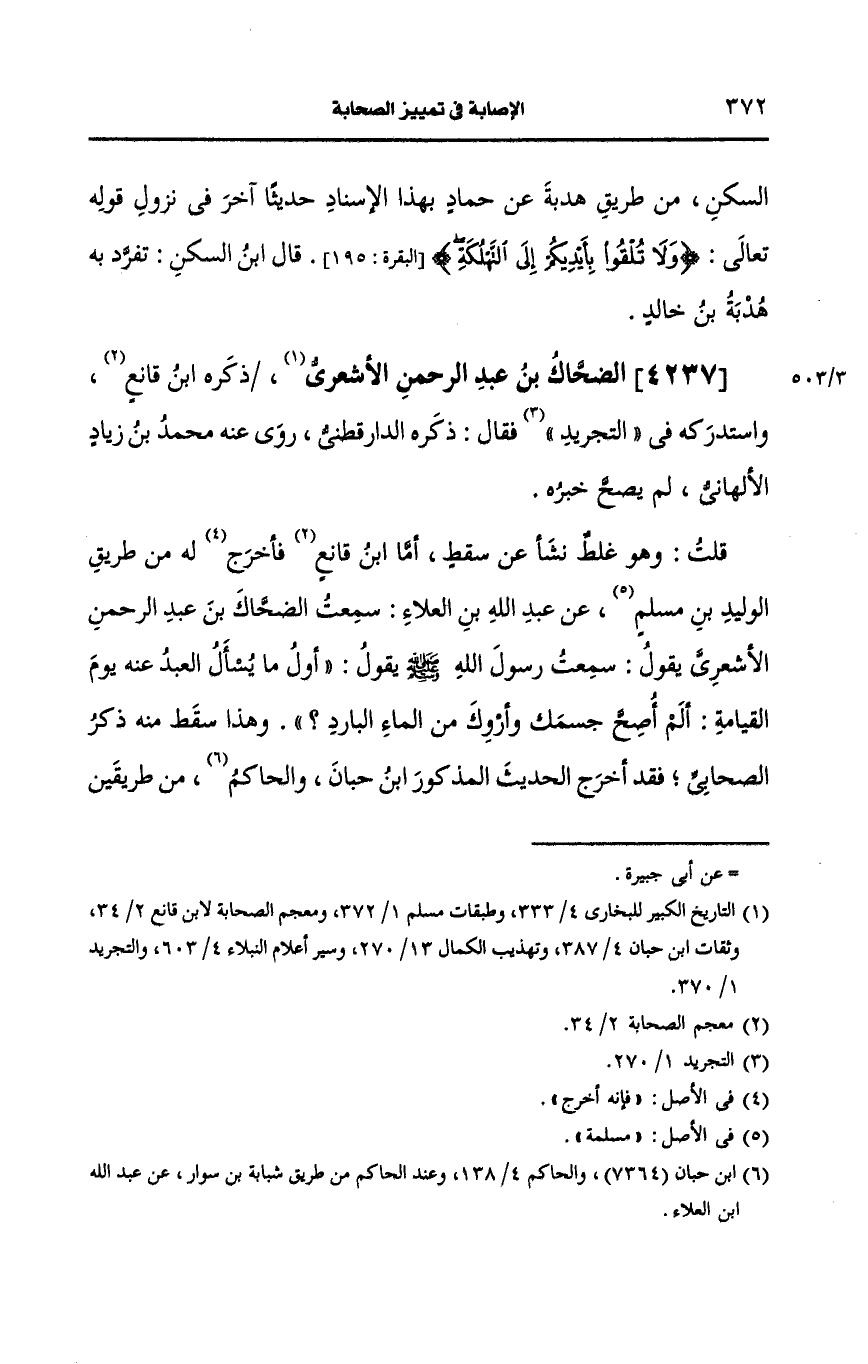 ٣٧٢ الإصابة فى تمييز الصحابة
السكنِ ، من طريقِ هدبةَ عن حمادٍ بهذا الإسنادِ حديثًا آخرَ فى نزولِ قولِه
تعالَى : ﴿وَلَا تُلْقُوا۟ بِأَيْدِيكُمْ إِلَى ٱلتَّهْلُكَةِۛ﴾ [البقرة : ١٩٥] . قال ابنُ السكنِ : تفرَّد به
هُدْبَةُ بنُ خالدٍ .
[٤٢٣٧] الضحَّاكُ بنُ عبدِ الرحمنِ الأشعرىُّ(١) ، /ذكَره ابنُ قانعٍ(٢) ، ٥٠٣/٣
واستدرَكه فى « التجريدِ »(٣) فقال : ذكَره الدارقطنىُّ ، روَى عنه محمدُ بنُ زيادٍ
الألهانىُّ ، لم يصحَّ خبرُه .
قلتُ : وهو غلطٌ نشَأ عن سقطٍ ، أمَّا ابنُ قانعٍ(٢) فأخرَج(٤) له من طريقِ
الوليدِ بنِ مسلمٍ(٥) ، عن عبدِ اللهِ بنِ العلاءِ : سمِعتُ الضحَّاكَ بنَ عبدِ الرحمنِ
الأشعرِىَّ يقولُ : سمِعتُ رسولَ اللهِ ﷺ يقولُ : « أولُ ما يُسْأَلُ العبدُ عنه يومَ
القيامةِ : ألَمْ أُصِحَّ جسمَك وأرْوِكَ من الماءِ الباردِ ؟ » . وهذا سقَط منه ذكرُ
الصحابِىِّ ؛ فقد أخرَج الحديثَ المذكورَ ابنُ حبانَ ، والحاكمُ(٦) ، من طريقَين
= عن أبى جبيرة .
(١) التاريخ الكبير للبخارى ٤/ ٣٣٣، وطبقات مسلم ١/ ٣٧٢، ومعجم الصحابة لابن قانع ٢/ ٣٤،
وثقات ابن حبان ٤/ ٣٨٧، وتهذيب الكمال ١٣/ ٢٧٠، وسير أعلام النبلاء ٤/ ٦٠٣، والتجريد
١/ ٣٧٠.
(٢) معجم الصحابة ٢/ ٣٤.
(٣) التجريد ١/ ٢٧٠.
(٤) فى الأصل : « فإنه أخرج » .
(٥) فى الأصل : « مسلمة » .
(٦) ابن حبان (٧٣٦٤) ، والحاكم ٤/ ١٣٨، وعند الحاكم من طريق شبابة بن سوار ، عن عبد الله
ابن العلاء .